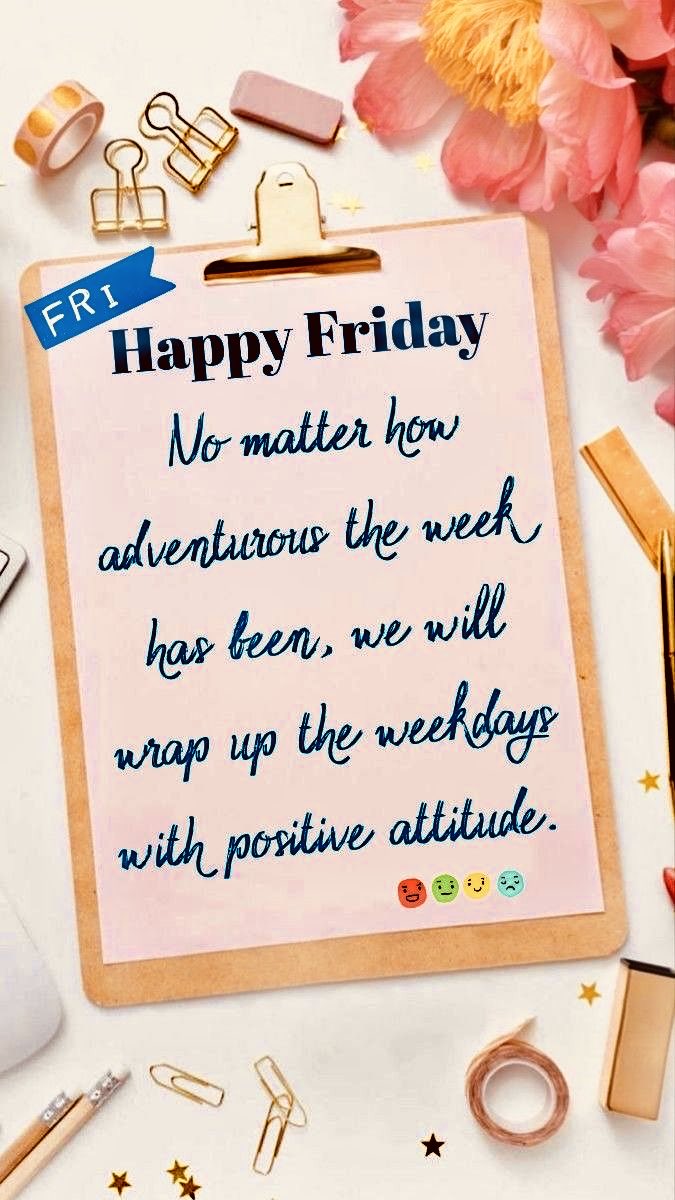 FRI
Happy Friday
No matter how
adventurous the week
has been, we will
wrap up the weekdays
with positive attitude.